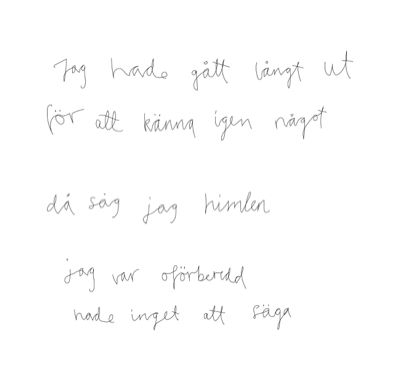 Jag hade gått långt ut
för att känna igen något
då såg jag himlen
jag var oförberedd
hade inget att säga